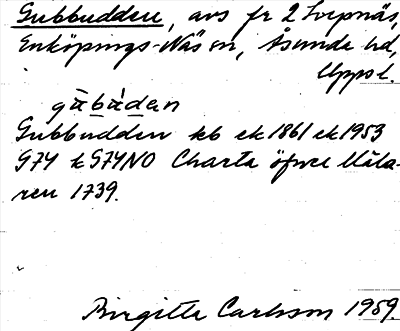 Gubbudden, avs fr 2 Svepnäs,
Enköpings-Näs sn, Åsunda hd,
Uppsl.
gàbádən
Gubbudden kb ek 1861 ek 1953
G7Y k S7YNO Charta öfwer Mäla-
ren 1739.
Birgitta Carlsson 1959.